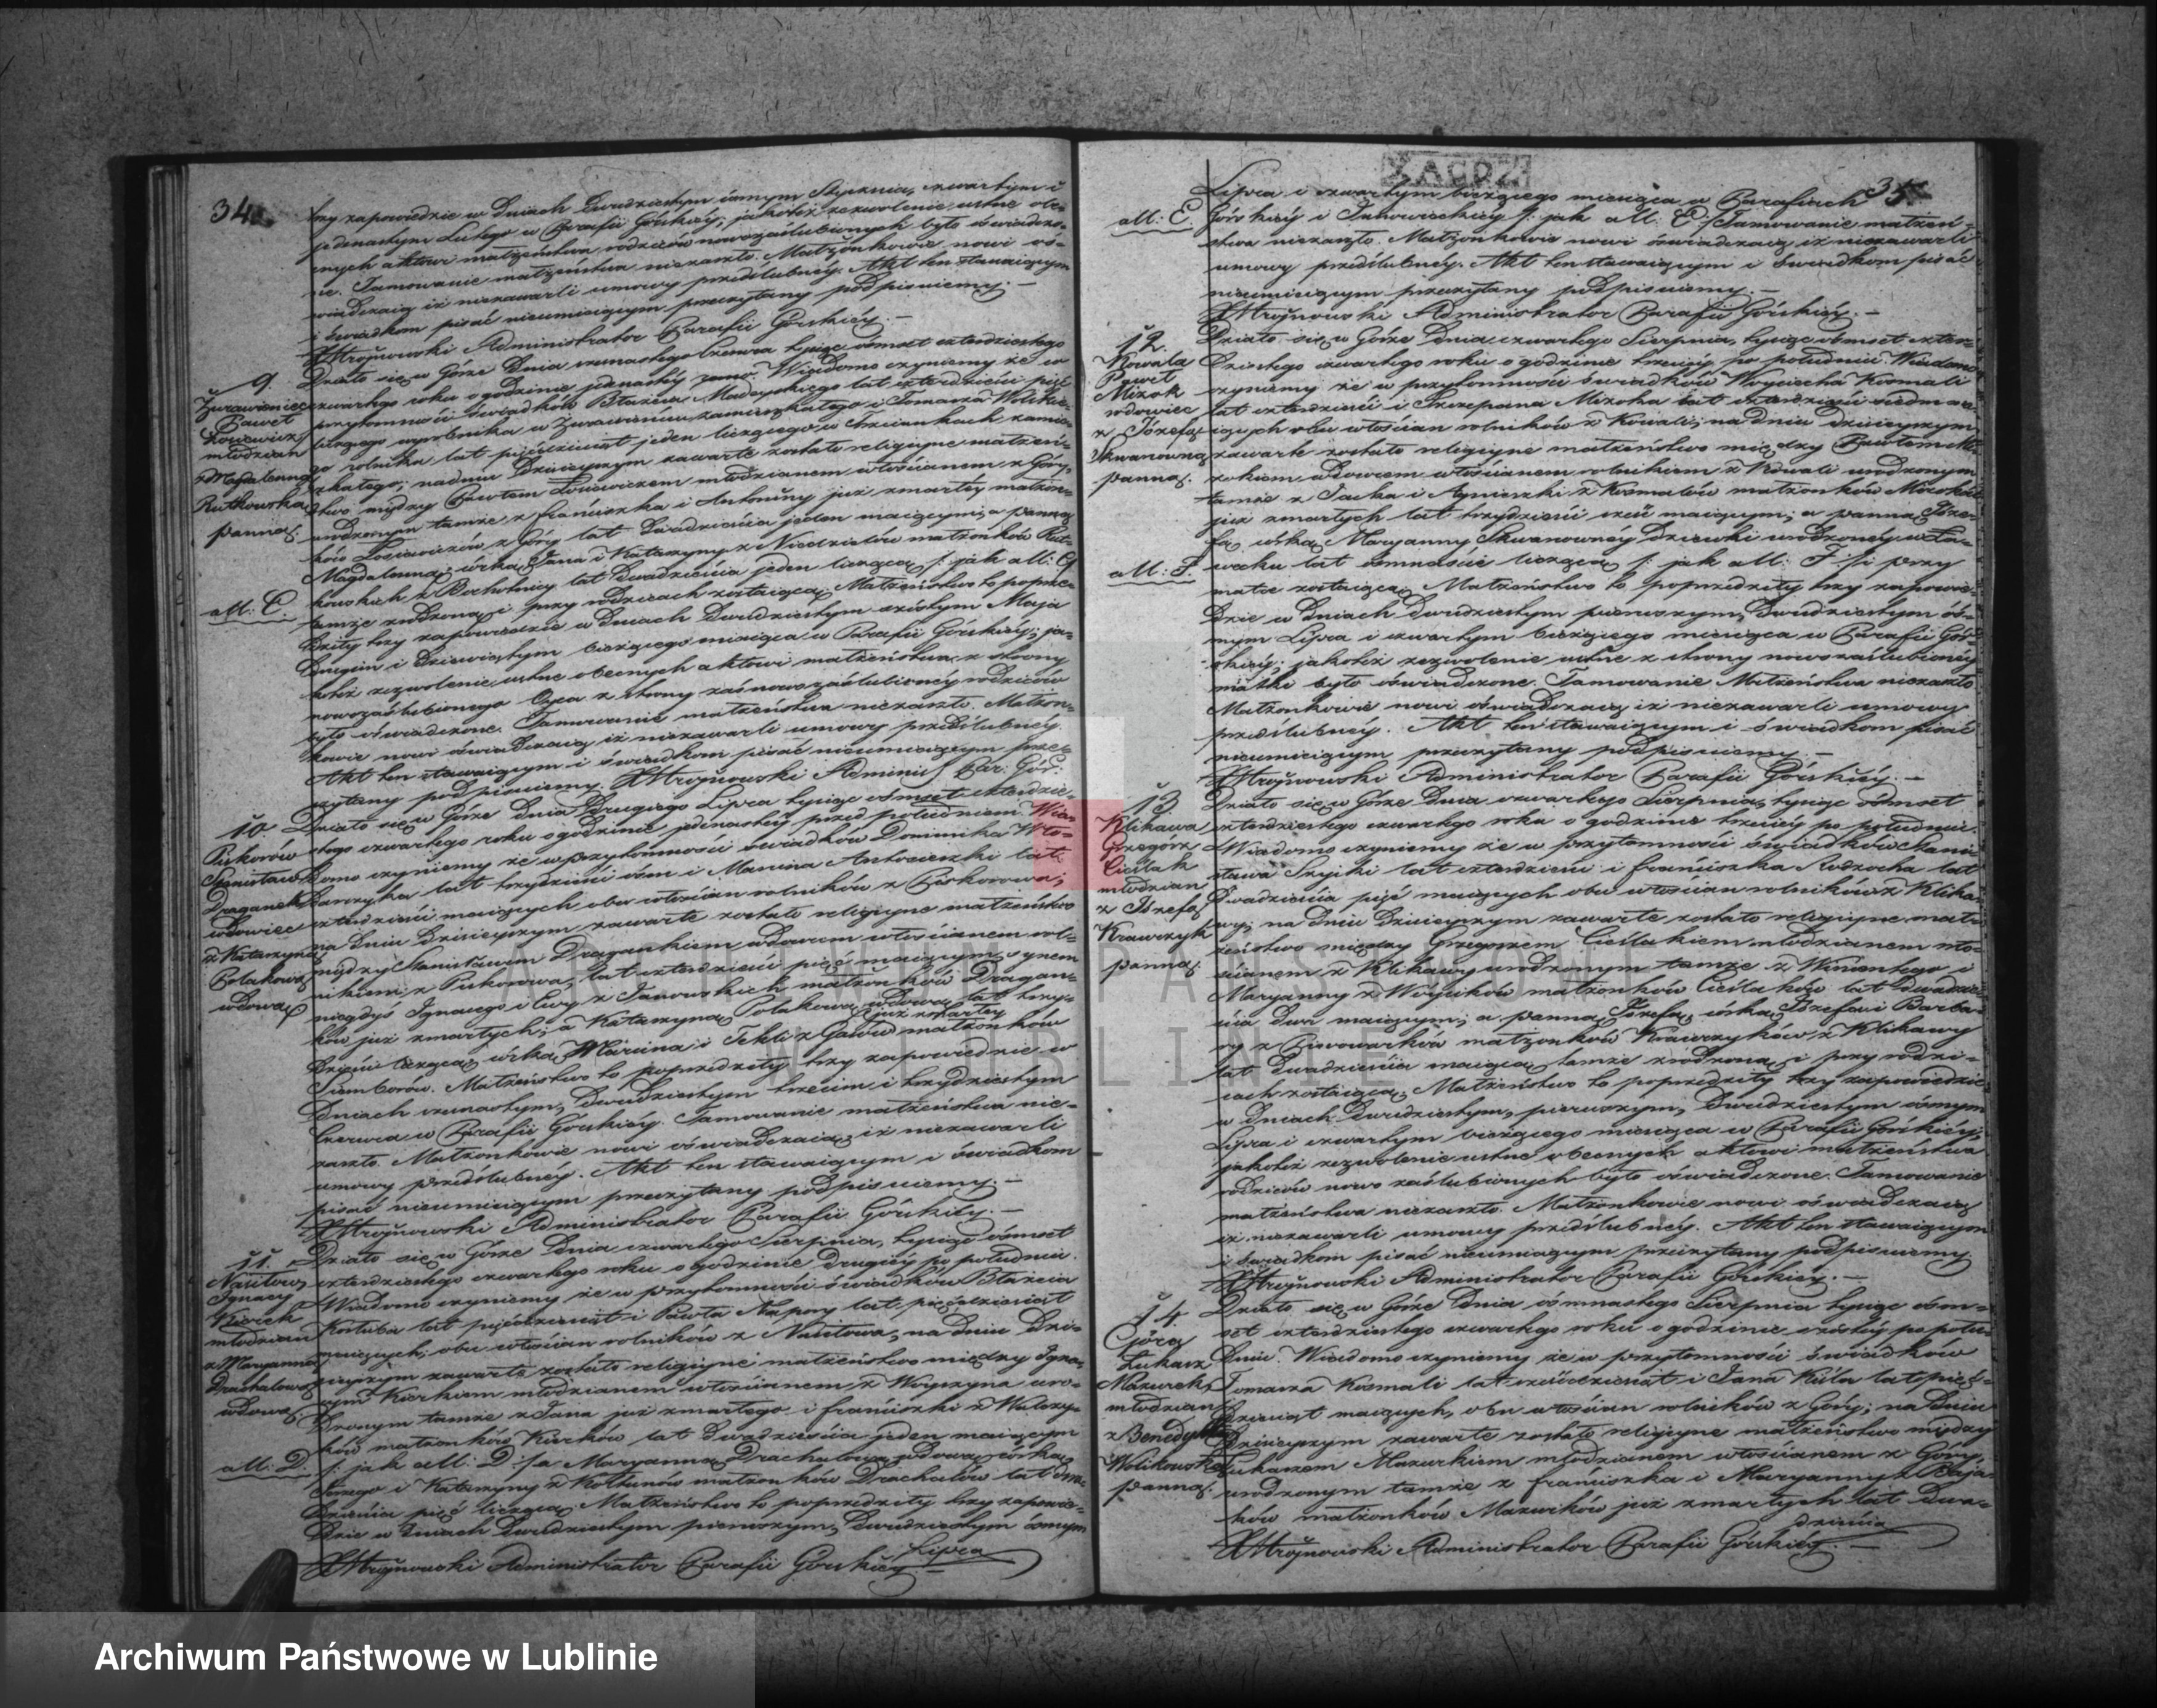 34.
trzy zapowiedzie w Dniach Dwudziestym ósmym Stycznia, czwartym i
jedenastym Lutego w Parafii Górskiéy, jakotéż zezwolenie ustne obe-
cnych aktowi małżeństwa rodziców nowozaślubionych było oświadczo-
ne. Tamowanie małżeństwa niezaszło. Małżonkowie nowi oś-
wiadczaią iż niezawarli umowy przedślubnéy. Akt ten stawaiącym
i świadkom pisać nieumieiącym przeczytany podpisuiemy. —
Administrator Parafii Górskiéy. —
9.
Żurawieniec
Paweł
Łosiewicz
młodzian
z Magdaleną
Rutkowską
panną.
Działo się w Górze Dnia szesnastego Czerwca tysiąc ośmset czterdziestego
czwartego roku o godzinie jedenastéy zrana. Wiadomo czyniemy że w
przytomności świadków Błażeia Madeyskiego lat czterdzieści pięć
liczącego wyrobnika w Żurawieńcu zamieszkałego i Tomasza Wolskie-
go rolnika lat pięćdziesiąt jeden liczącego w Trzciankach zamie-
szkałego; na dniu Dzisieyszym zawarte zostało religiyne małżeń-
stwo między Pawłem Łosiewiczem młodzianem włościanem z Góry,
urodzonym tamże z Franciszka i Antoniny już zmarłey małżon-
ków Łosiewiczów z Góry lat Dwadzieścia jeden maiącym; a panną
Magdaleną, córką Jana i Katarzyny z Niedzielów małżonków Rut-
kowskich z Bochotnicy lat Dwadzieścia jeden liczącą /: jak all: C/
all: C.
tamże zrodzoną i przy rodzicach zostaiącą. Małżeństwo to poprze-
dziły trzy zapowiedzie w Dniach Dwudziestym szóstym Maja
Drugim i Dziewiątym bieżącego miesiąca w Parafii Górskiéy; ja-
kotéż zezwolenie ustne obecnych aktowi małżeństwa z strony
nowozaślubionego Oyca z strony zaś nowozaślubionéy rodziców
było oświadczone. Tamowanie małżeństwa niezaszło. Małżon-
kowie nowi oświadczaią iż niezawarli umowy przedślubnéy.
Akt ten stawaiącym i świadkom pisać nieumieiącym prze-
czytany podpisuiemy. Adminis. Par: Gór:
10
Piskorów
Stanisław
Draganek
wdowiec
z Katarzyną
Polakową
wdową
Działo się w Górze Dnia Drugiego Lipca tysiąc ośmset czterdzie-
stego czwartego roku o godzinie jedenastéy przed południem. Wia-
domo czyniemy że w przytomności świadków Dominika Wło-
darczyka lat trzydzieści ośm i Marcina Antoszeszki lat
czterdzieści maiących obu włościan rolników z Piskorowa;
na dniu Dzisieyszym zawarte zostało religiyne małżeństwo
między Stanisławem Dragankiem wdowcem włościanem rol-
nikiem z Piskorowa, lat czterdzieści pięć maiącym synem
niegdyś Ignacego i Ewy z Janowskich małżonków Dragan-
ków już zmarłych; a Katarzyną Polakową wdową lat trzy-
już zmarłey
dzieści liczącą córką Marcina i Tekli z Gawdów małżonków
Samborów. Małżeństwo to poprzedziły trzy zapowiedzie w
Dniach szesnastym, Dwudziestym trzecim i trzydziestym
Czerwca w Parafii Górskiéy. Tamowanie małżeństwa nie-
zaszło. Małżonkowie nowi oświadczaią iż niezawarli
umowy przedślubnéy. Akt ten stawaiącym i świadkom
pisać nieumieiącym przeczytany podpisuiemy. —
Administrator Parafii Górskiéy. —
11.
Nasiłow
Ignacy
Kurek
młodzian
z Maryanną
Drachalową
wdową
Działo się w Górze Dnia czwartego Sierpnia, tysiąc ośmset
czterdziestego czwartego roku o godzinie drugiéy po południu.
Wiadomo czyniemy że w przytomności świadków Błażeia
Kołtuba lat pięćdziesiąt i Pawła Napory lat pięćdziesiąt
maiących; obu włościan rolników z Nasiłowa, na dniu Dzi-
sieyszym zawarte zostało religiyne małżeństwo między Igna-
cym Kurkiem młodzianem włościanem z Woyszyna uro-
dzonym tamże z Jana już zmarłego i Franciszki z Walczy-
ków małżonków Kurków lat Dwadzieścia jeden maiącym
all: D.
/: jak all: D :/ a Maryanną Drachalową wdową córką
Jerzego i Katarzyny z Kołtunów małżonków Drachalów lat dwa-
dzieścia pięć liczącą. Małżeństwo to poprzedziły trzy zapowie-
dzie w Dniach Dwudziestym pierwszym, Dwudziestym ósmym
Lipca
Administrator Parafii Górskiéy —
35
Lipca i czwartym bieżącego miesiąca w Parafiach
all: E
Górskiéy i Janowieckiéy /: jak all: E :/ Tamowanie małżeń-
stwa niezaszło. Małżonkowie nowi oświadczaią iż niezawarli
umowy przedślubnéy. Akt ten stawaiącym i świadkom pisać
nieumieiącym przeczytany podpisuiemy. —
Administrator Parafii Górskiéy. —
12.
Kowala
Paweł
Mizok
wdowiec
z Józefą
Skwanowną
panną.
Działo się w Górze Dnia czwartego Sierpnia, tysiąc ośmset czter-
dziestego czwartego roku o godzinie trzeciéy po południu. Wiadomo
czyniemy że w przytomności świadków Woyciecha Kosmali
lat czterdzieści i Szczepana Mizoka lat czterdzieści siedm ma-
iących obu włościan rolników z Kowali; na dniu dzisieyszym
zawarte zostało religiyne małżeństwo między Pawłem Mi-
zokiem wdowcem włościanem rolnikiem z Kowali urodzonym
tamże z Jacka i Agnieszki z Kosmalów małżonków Mizoków
już zmarłych lat trzydzieści sześć maiącym; a panną Józe-
fą córką Maryanny Skwanownéy Dziewki urodzonéy w
lat ośmnaście liczącą /: jak all: F :/ i przy
all: F.
matce zostaiącą. Małżeństwo to poprzedziły trzy zapowie-
dzie w Dniach Dwudziestym pierwszym, Dwudziestym ós-
mym Lipca i czwartym bieżącego miesiąca w Parafii Gór-
skiéy; jakotéż zezwolenie ustne z strony nowozaślubionéy
matki było oświadczone. Tamowanie Małżeństwa niezaszło
Małżonkowie nowi oświadczaią iż niezawarli umowy
przedślubnéy. Akt ten stawaiącym i świadkom pisać
nieumieiącym przeczytany podpisuiemy. —
Administrator Parafii Górskiéy. —
13
Klikawa
Grzegorz
Cieślak
młodzian
z Józefą
Krawczyk
panną.
Działo się w Górze Dnia czwartego Sierpnia, tysiąc ośmset
czterdziestego czwartego roku o godzinie trzeciéy po południu.
Wiadomo czyniemy że w przytomności świadków Stani-
sława lat czterdzieści i Franciszka lat
Dwadzieścia pięć maiących obu włościan rolników z Klika-
wy; na dniu Dzisieyszym zawarte zostało religiyne mał-
żeństwo między Grzegorzem Cieślakiem młodzianem wło-
ścianem z Klikawy urodzonym tamże z Wincentego i
Maryanny z Woycików małżonków Cieślaków lat dwadzie-
ścia dwa maiącym; a panną Józefą, córką Józefa i Barba-
ry z Piwowarków małżonków Krawczyków z Klikawy
lat Dwadzieścia maiącą tamże zrodzoną i przy rodzi-
cach zostaiącą. Małżeństwo to poprzedziły trzy zapowiedzie
w Dniach Dwudziestym, pierwszym, Dwudziestym ósmym
Lipca i czwartym bieżącego miesiąca w Parafii Górskiéy;
jakotéż zezwolenie ustne obecnych aktowi małżeństwa
rodziców nowo zaślubionych było oświadczone. Tamowanie
małżeństwa niezaszło. Małżonkowie nowi oświadczaią
iż niezawarli umowy przedślubnéy. Akt ten stawaiącym
i świadkom pisać nieumieiącym przeczytany podpisuiemy.
Administrator Parafii Górskiéy. —
14.
Góra
Łukasz
Mazurek
młodzian
z Benedyktą
Wolikowską
panną.
Działo się w Górze Dnia ósmnastego Sierpnia tysiąc ośm-
set czterdziestego czwartego roku o godzinie szóstéy po połu-
dniu. Wiadomo czyniemy że w przytomności świadków
Tomasza Kosmali lat sześćdziesiąt i Jana Kuśla lat pięć-
dziesiąt maiących, obu włościan rolników z Góry; na dniu
Dzisieyszym zawarte zostało religiyne małżeństwo między
Łukaszem Mazurkiem młodzianem włościanem z Góry
urodzonym tamże z Franciszka i Maryanny z Baja-
ków małżonków Mazurków już zmarłych lat Dwa-
dzieścia
Administrator Parafii Górskiéy. —
ARCHIWUM PAŃSTWOWE
W LUBLINIE
Archiwum Państwowe w Lublinie